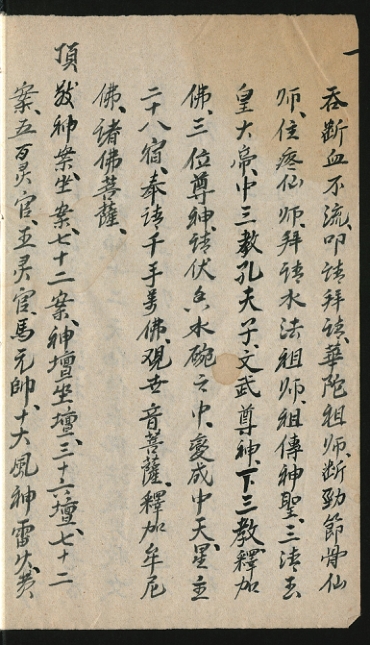 吞斷血不流、叩請拜請、華陀祖师、斷勁節骨仙
师、住疼仙师、拜請水法祖师、祖傳神聖、三清玉
皇大帝、中三教孔夫子、文武尊神、下三教釋加
佛、三位尊神、請伏水碗之中、变成中天星主
二十八宿、奉請千手萬佛、观世音菩薩、釋加牟尼
佛、诸佛菩薩、
頂敬神案坐案、七十二案、神壇坐壇、三十六壇、七十二
案、五百灵官、王灵官、馬元帥、十大風神雷火